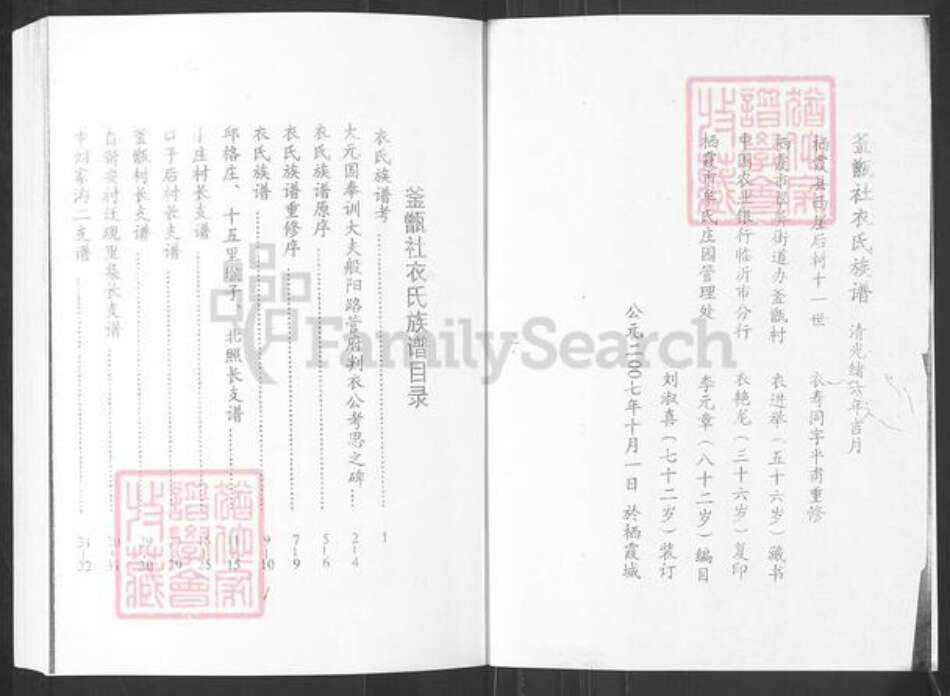 釜甑社衣氏族谱 清光緒 年吉月
栖霞县 崖后村十一世 衣寿同字平甫重修
栖霞市 街道办釜甑村 衣进举(五十六岁)藏书
中国农业银行临沂市分行 衣艳龙(三十六岁)复印
栖霞市牟氏庄园管理处 李元章(八十二岁)编目
刘淑喜(七十二岁)装订
公元二00七年十月一日 於栖霞城
釜甑社衣氏族谱目录
衣氏族谱考 1
大元国奉训大夫般阳路 府判衣公考思之碑 2-4
衣氏族谱原序 5-6
衣氏族谱重修序 7-9
衣氏族谱 9-10
邱格庄、十五里 子、北照长支谱 11-15
庄村长支谱 25
口子后村长支谱 29
釜甑村长支谱 30
村迁现 里集长支谱
刘家沟二支谱 31-22
猶他家譜學會收藏
猶他家譜學會收藏
FamilySearch